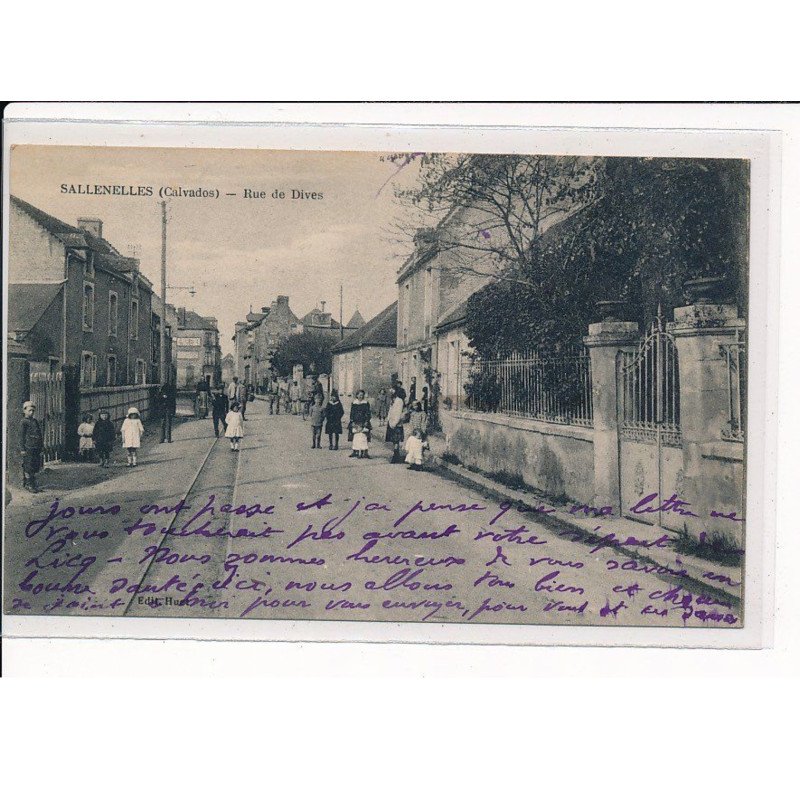 SALLENELLES (Calvados) — Rue de Dives
jours ont passé et j'ai pensé que ma lettre ne
vous toucherait pas avant votre départ de
Nous sommes heureux de vous savoir en
bonne santé, ici, nous allons tous bien et
pour vous envoyer, pour vous et
Edit.